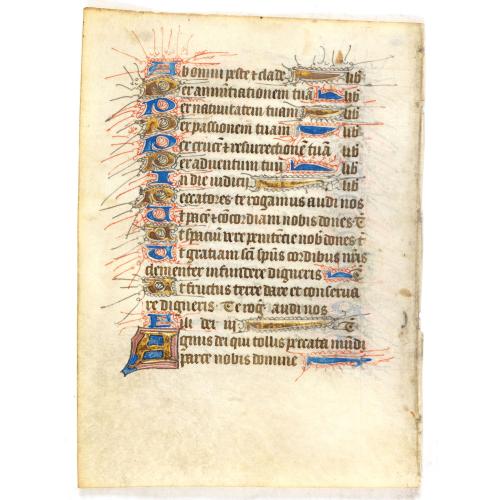 Ab omni peste & clade lib
Per annūtiationem tuā lib
Per natiuitatem tuam lib
Per passionem tuam lib
Per crucē & resurrectionē tuā lib
Per aduentum tuū lib
In die iudicij lib
Peccatores te rogamus audi nos
Ut pacē & cōcordiam nobis dones T
Ut spaciū vere penitēcie nob dones t
Ut gratiam scī spūs cordibus nr̄is
clementer infundere digneris T
Ut fructus terre dare et conserua
re digneris Te rog audi nos
Fili dei iij T
Agnus dei qui tollis peccata mūdi
parce nobis domine